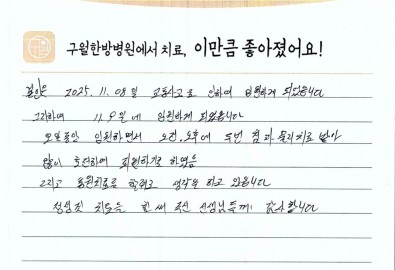 구월한방병원에서 치료, 이만큼 좋아졌어요!
본인은 2025. 11. 08일 교통사고로 인하여 입원하게 되었습니다
그리하여 11. 9일에 입원하게 되었습니다
오일동안 입원하면서 오전, 오후에 두번 침과 물리치료 받아
많이 호전하여 퇴원하기로 하였음
그리고 통원치료로 할려고 생각을 하고 있습니다
정성껏 치료를 힘써 주신 선생님들께! 감사합니다